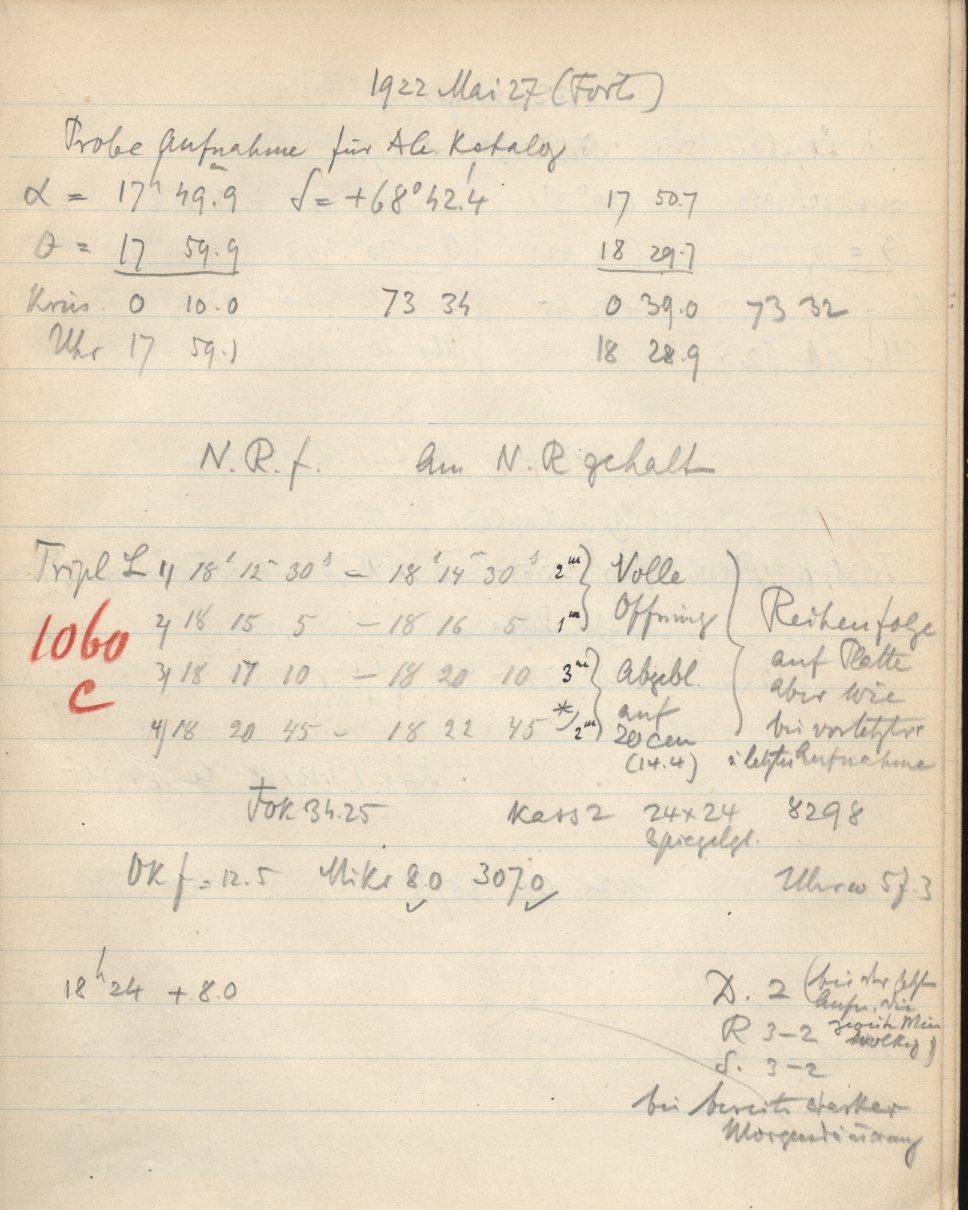 1922 Mai 27 (Forts)
Probe Aufnahme für AG Katalog
α = 17h 49m.9 δ = +68° 42'.4 17 50.7
θ = 17 59.9 18 29.7
Kreis 0 10.0 73 34 0 39.0 73 32
Uhr 17 59.1 18 28.9
N. R. f. Am N. R gehalt
Tripl L 1) 18h 12m 30s – 18h 14m 30s 2m } Volle
1060 2) 18 15 5 – 18 16 5 1m } Öffnung Reihenfolge
c 3) 18 17 10 – 18 20 10 3m } Abgebl. auf Platte
auf aber wie
4) 18 20 45 – 18 22 45 *) 2m } 20 cm bei vorletzter
(14.4) u letzter Aufnahme
Fok 34.25 Kass 2 24×24 8298
Spiegelgl.
OK f = 12.5 Mikr 8.0 307.0 Uhrw 57.3
18h 24 + 8.0
D. 2 (bei der letzt
Aufn. die
R 3–2 zweite Min
wolkig)
S. 3–2
bei bereits starker
Morgendämmerung